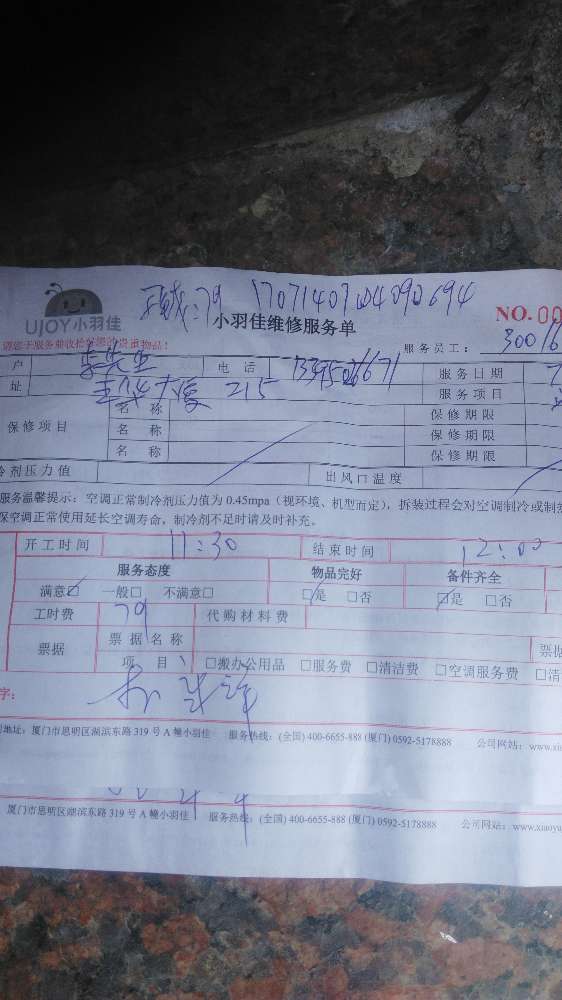 :79 1707140704090694
UJOY小羽佳
小羽佳维修服务单
NO.00
请您于服务前收拾好您的贵重物品!
服务员工: 30016
户 李先生 电话 服务日期
址 大厦 215 服务项目
保修项目 名称 保修期限
名称 保修期限
名称 保修期限
冷剂压力值 出风口温度
服务温馨提示:空调正常制冷剂压力值为 0.45mpa(视环境、机型而定),拆装过程会对空调制冷或制
保空调正常使用延长空调寿命,制冷剂不足时请及时补充。
开工时间 11:30 结束时间 12:00
服务态度 物品完好 备件齐全
满意☑ 一般□ 不满意□ ☑是 □否 ☑是 □否
工时费 79 代购材料费
票据 票据名称 票据
项目 □搬办公用品 □服务费 □清洁费 □空调服务费 □清
字:
地址:厦门市思明区湖滨东路 319 号 A 幢小羽佳 服务热线:(全国) 400-6655-888 (厦门) 0592-5178888 公司网站:www.xi
厦门市思明区湖滨东路 319 号 A 幢小羽佳 服务热线:(全国) 400-6655-888 (厦门) 0592-5178888 公司网站:www.xiaoyu